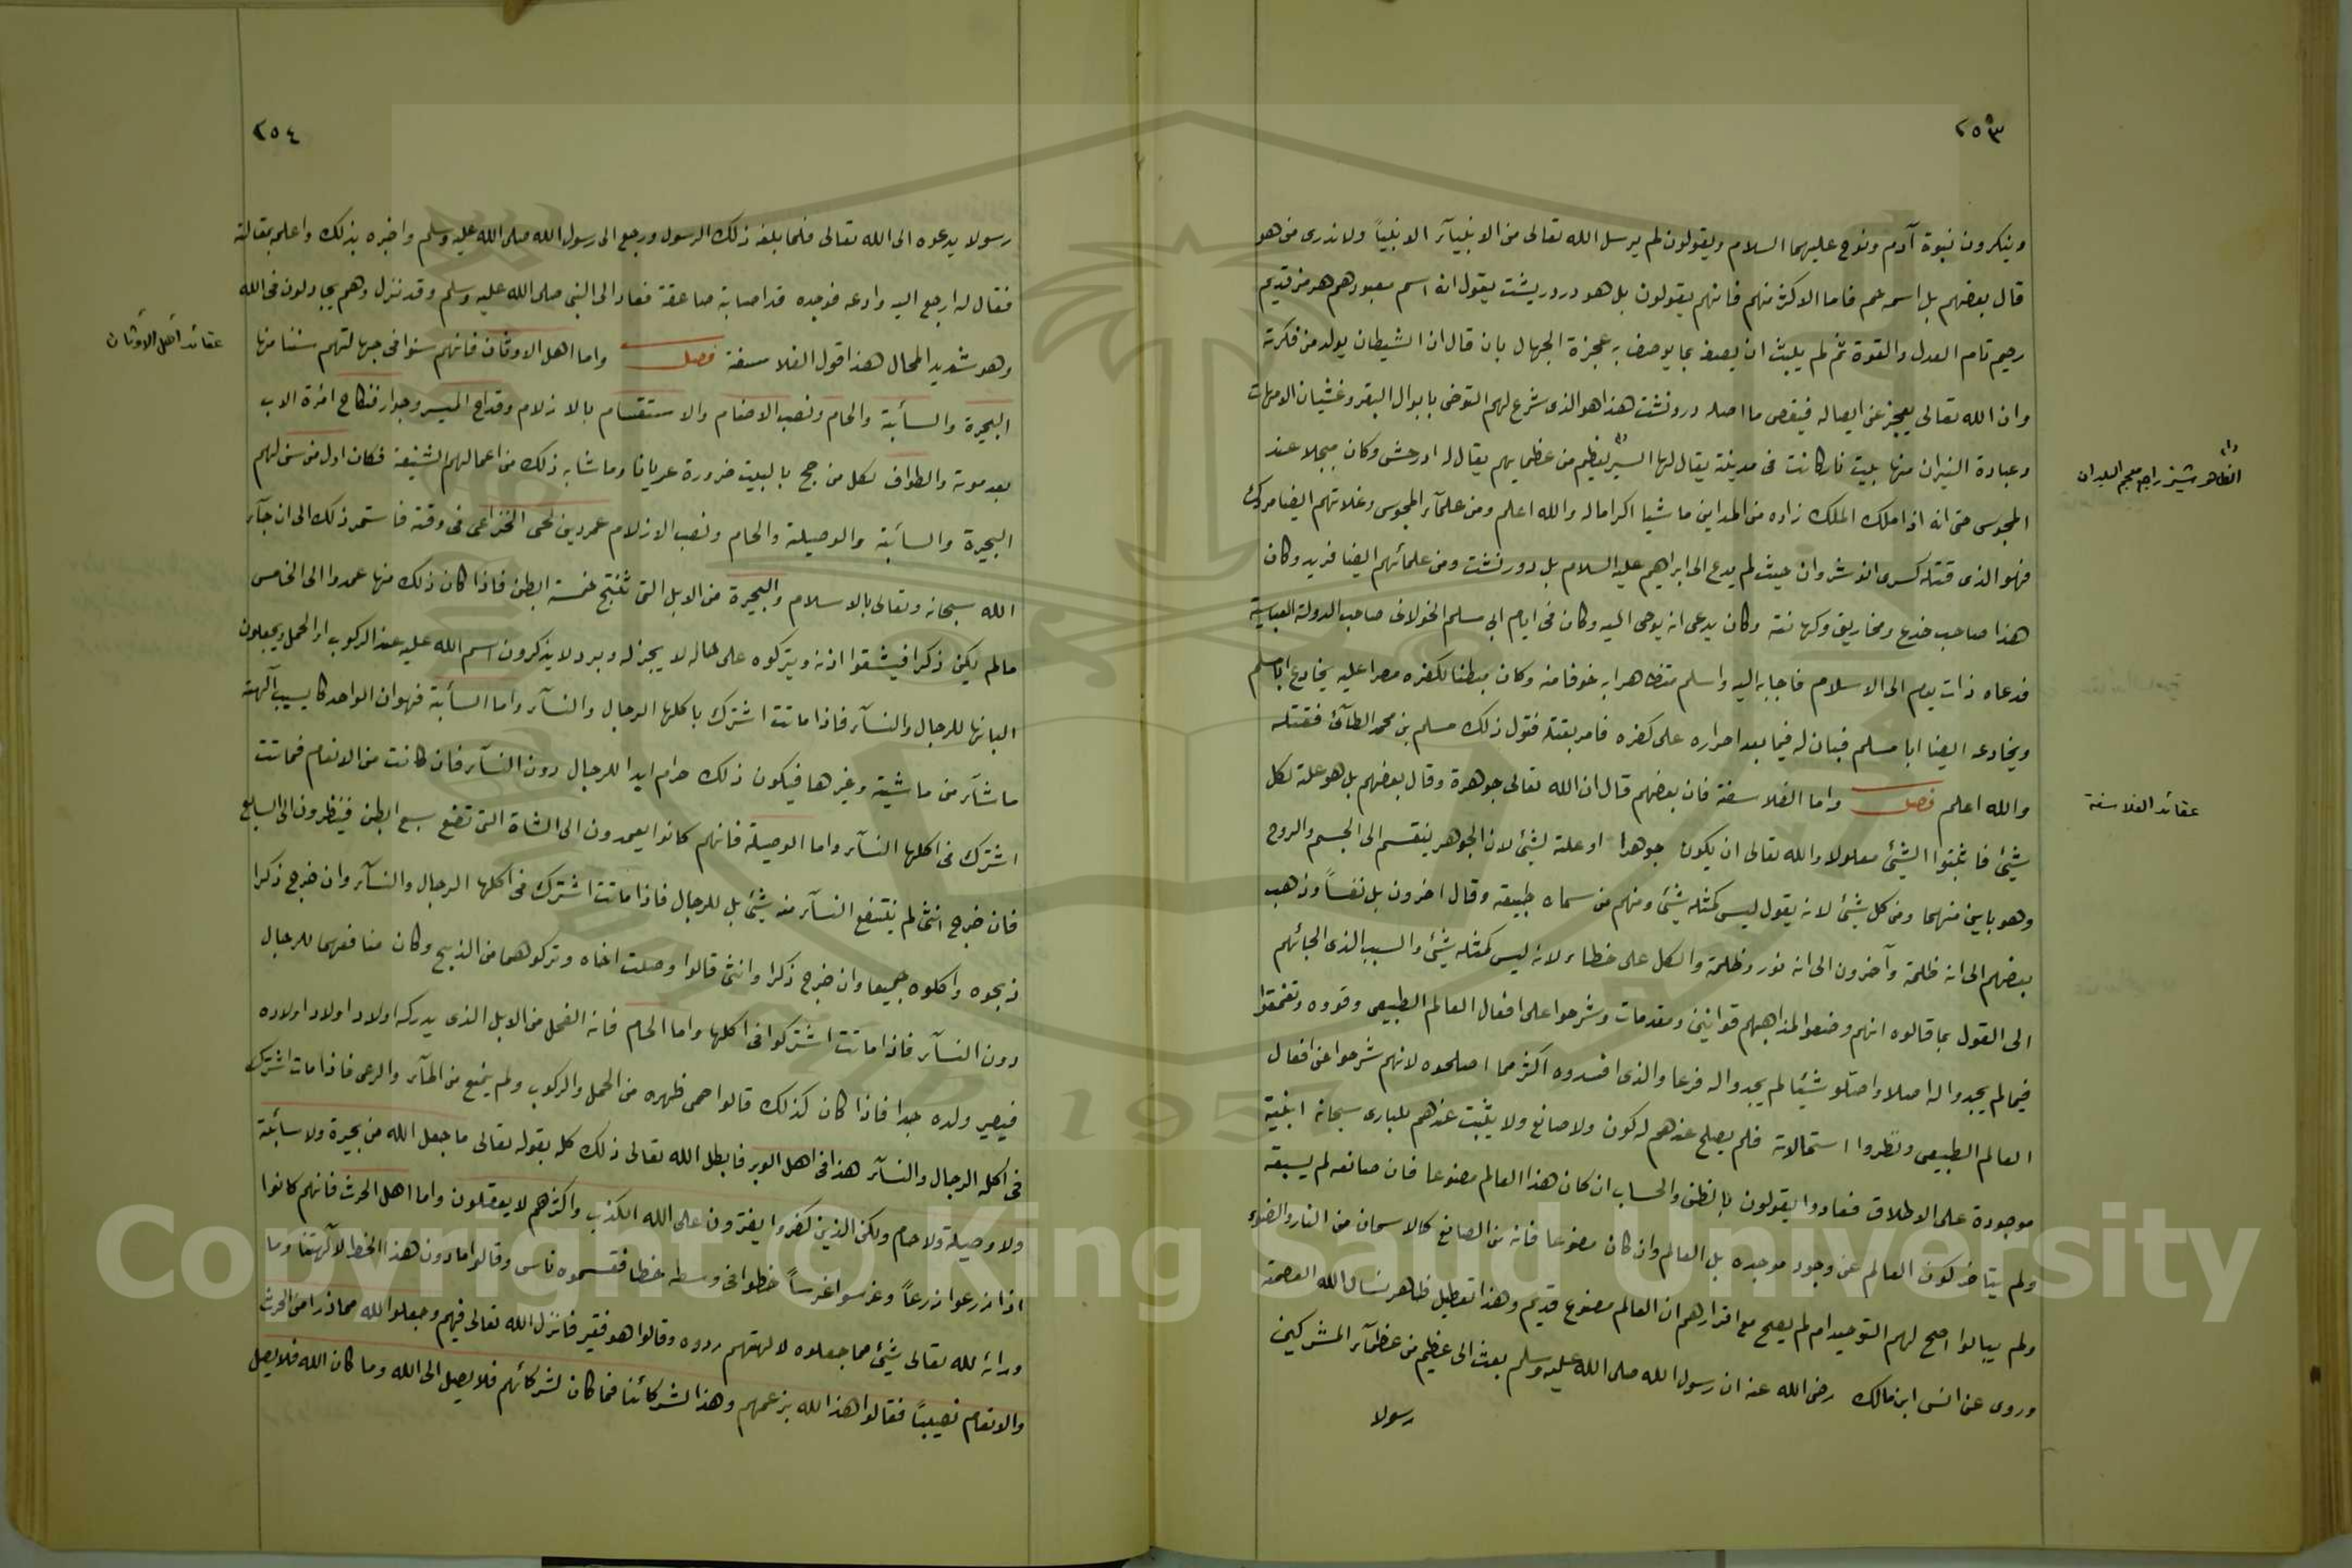 ٢٥٣
وينكرون نبوة آدم ونوح عليهما السلام ويقولون لم يرسل الله تعالى من الانبيآء الا نبياً ولا ندرى من هو
قال بعضهم بل اسمه فاما الاكثر منهم فانهم يقولون بل هو يقول انه اسم معبودهم هرمز قديم
رحيم تام العدل والقوة ثم لم يلبث ان يصف بما يوصف به عجزة الجهال بان قال ان الشيطان يولد من فكرته
وان الله تعالى يعجز عن ايصاله فينقص ما اصله دردنشت هذا هو الذى شرع لهم التوضى بابوال البقر وغشيان الامهات
وعبادة النيران منها بيت نار كانت فى مدينة يقال لها لعظيم من عظمايهم يقال له وكان مبجلا عند
المجوس حتى انه اذا ملك الملك زاده من المداين ماشيا اكراما له والله اعلم ومن علمآء المجوس وغلاتهم ايضا مردك
فهو الذى قتله كسرى انوشروان حيث لم يدع الى ابراهيم عليه السلام بل دورنشت ومن علمائهم ايضا فريد وكان
هذا صاحب خدع ومخاريق وكهانته وكان يدعى انه يوحى اليه وكان فى ايام ابى مسلم الخولانى صاحب الدولة العباسية
فدعاه ذات يوم الى الاسلام فاجابه اليه واسلم متظاهرا به خوفا منه وكان مبطنا لكفره مصرا عليه يخادع ابا مسلم
ويخادعه ايضا ابا مسلم فبان له فيما بعد اصراره على كفره فامر بقتله فتول ذلك مسلم بن محمد الطآئى فقتله
والله اعلم فصل واما الفلاسفة فان بعضهم قال ان الله تعالى جوهرة وقال بعضهم بل هو علة لكل
شيئ فاثبتوا الشيئ معلولا والله تعالى ان يكون جوهرا او علة لشيئ لان الجوهر ينقسم الى الجسم والروح
وهو باين منهما ومن كل شيئ لانه يقول ليس كمثله شيئ ومنهم من سماه طبيعة وقال اخرون بل نفساً وذهب
بعضهم الى انه ظلمة وآخرون الى انه نور وظلمة والكل على خطاء لانه ليس كمثله شيئ والسبب الذى الجائهم
الى القول بما قالوه انهم وضعوا لمذاهبهم قوانين ومقدمات وشرحوا على افعال العالم الطبيعى وقووه وتعمقوا
فيما لم يجدوا له اصلا واصّلو شيئا لم يجدوا له فرعا والذى افسدوه اكثر مما اصلحوه لانهم شرحوا عن افعال
العالم الطبيعى ونظروا استحالاته فلم يصلح عندهم له كون ولا صانع ولا يثبت عندهم للبارى سبحانه ابنية
موجودة على الاطلاق فعادوا يقولون بالظن والحساب ان كان هذا العالم مصنوعا فان صانعه لم يسبقه
ولم يتاخر كون العالم عن وجود موجده بل العالم وان كان مصنوعا فانه من الصانع كالاسمان من النار والضوء
ولم يبالوا اصح لهم التوحيد ام لم يصح مع اقرارهم ان العالم مصنوع قديم وهذا تعطيل ظاهر نسال الله العصمة
وروى عن انس ابن مالك رضى الله عنه ان رسول الله صلى الله عليه وسلم بعث الى عظيم من عظمآء المشركين
رسولا
الظاهر شيز راجع معجم البلدان
عقائد الفلاسفة
٢٥٤
رسولا يدعوه الى الله تعالى فلما بلغه ذلك الرسول ورجع الى رسول الله صلى الله عليه وسلم واخبره بذلك واعلمه بمقالته
فقال له ارجع اليه وادعه فوجده قد اصابته صاعقة فعاد الى النبى صلى الله عليه وسلم وقد نزل وهم يجادلون فى الله
وهو شديد المحال هذا قول الفلاسفة فصل واما اهل الاوثان فانهم سنوا فى جهالتهم سننا منها
البحيرة والسائبة والحام ونصب الاصنام والاستقسام بالازلام وقداح الميسر وجواز نكاح امرة الاب
بعد موته والطواف لكل من حج بالبيت ضرورة عريانا وما شابه ذلك من اعمالهم الشنيعة فكان اول من سن لهم
البحيرة والسائبة والوصيلة والحام ونصب الازلام عمر بن لحى الخزاعى فى وقته فاستمر ذلك الى ان جآء
الله سبحانه وتعالى بالاسلام والبحيرة من الابل التى تنتج خمسة ابطن فاذا كان ذلك منها عمدوا الى الخامس
مالم يكن ذكرا فيشقوا اذنه ويتركوه على حاله لا يجز له وبر ولا يذكرون اسم الله عليه عند الركوب او الحمل ويجعلون
البانها للرجال والنسآء فاذا ماتت اشترك باكلها الرجال والنسآء واما السائبة فهو ان الواحد كا يسيب آلهته
ماشآء من ماشية وغيرها فيكون ذلك حرام ابدا للرجال دون النسآء فان كانت من الانعام فماتت
اشترك فى اكلها النسآء واما الوصيلة فانهم كانوا يعمدون الى الشاة التى تضع سبع ابطن فينظرون الى السابع
فان خرج انثى لم ينتفع النسآء منه بشيئ بل للرجال فاذا ماتت اشترك فى اكلها الرجال والنسآء وان خرج ذكرا
ذبحوه واكلوه جميعا وان خرج ذكرا وانثى قالوا وصلت اخاه وتركوهما من الذبح وكان منافعهما للرجال
دون النسآء فاذا ماتت اشتركوا فى اكلها واما الحام فانه الفحل من الابل الذى يدركه اولاد اولاد اولاده
فيصير ولده جدا فاذا كان كذلك قالوا حمى ظهره من الحمل والركوب ولم يمنع من المآء والرعى فاذا مات اشترك
فى اكله الرجال والنسآء هذا فى اهل الوبر فابطل الله تعالى ذلك كله بقوله تعالى ما جعل الله من بحيرة ولا سائبة
ولا وصيلة ولا حام ولكن الذين كفروا يفترون على الله الكذب واكثرهم لا يعقلون واما اهل الحرث فانهم كانوا
اذا زرعوا زرعاً وغرسوا غرساً خطوا فى وسطه خطا فقسموه ناس وقالوا ما دون هذا الخط لآلهتنا وما
ورائه لله تعالى شيئ مما جعلوه لالهتهم ردوه وقالوا هو فقير فانزل الله تعالى فيهم وجعلوا لله مما ذرا من الحرث
والانعام نصيباً فقالوا هذا لله بزعمهم وهذا لشركائنا فما كان لشركائهم فلا يصل الى الله وما كان الله فلا يصل
عقائد أهل الأوثان
Copyright © King Saud University
1957